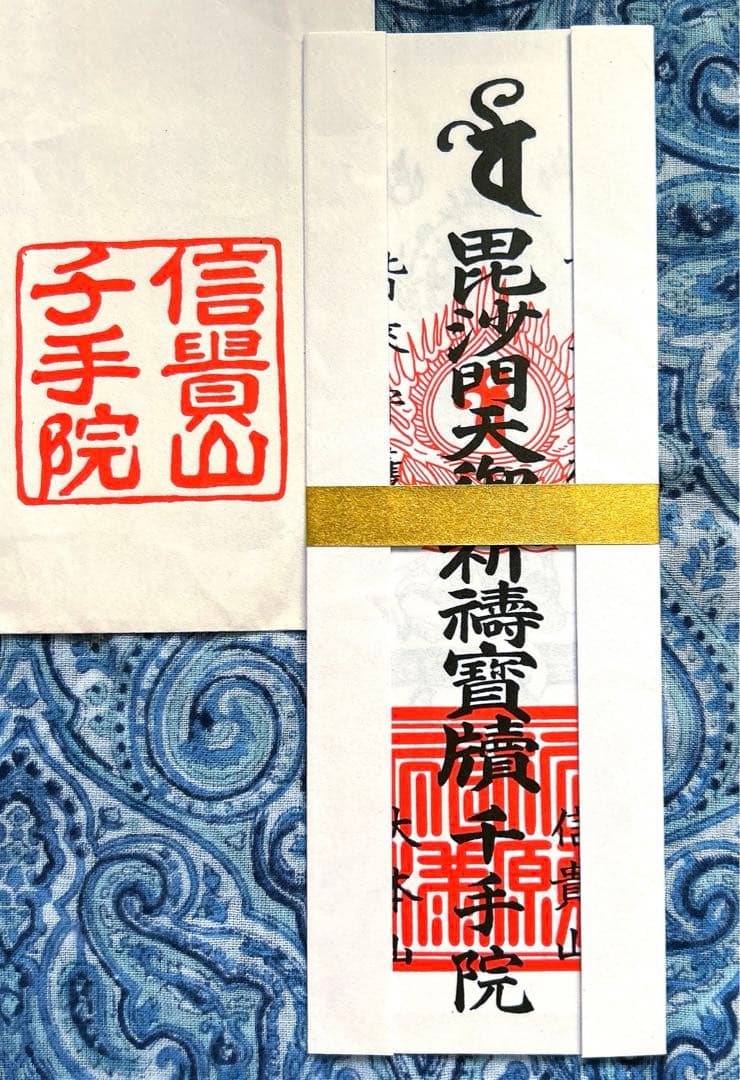 信貴山
千手院
毘沙門天御祈禱寶牘千手院
信貴山
大本山